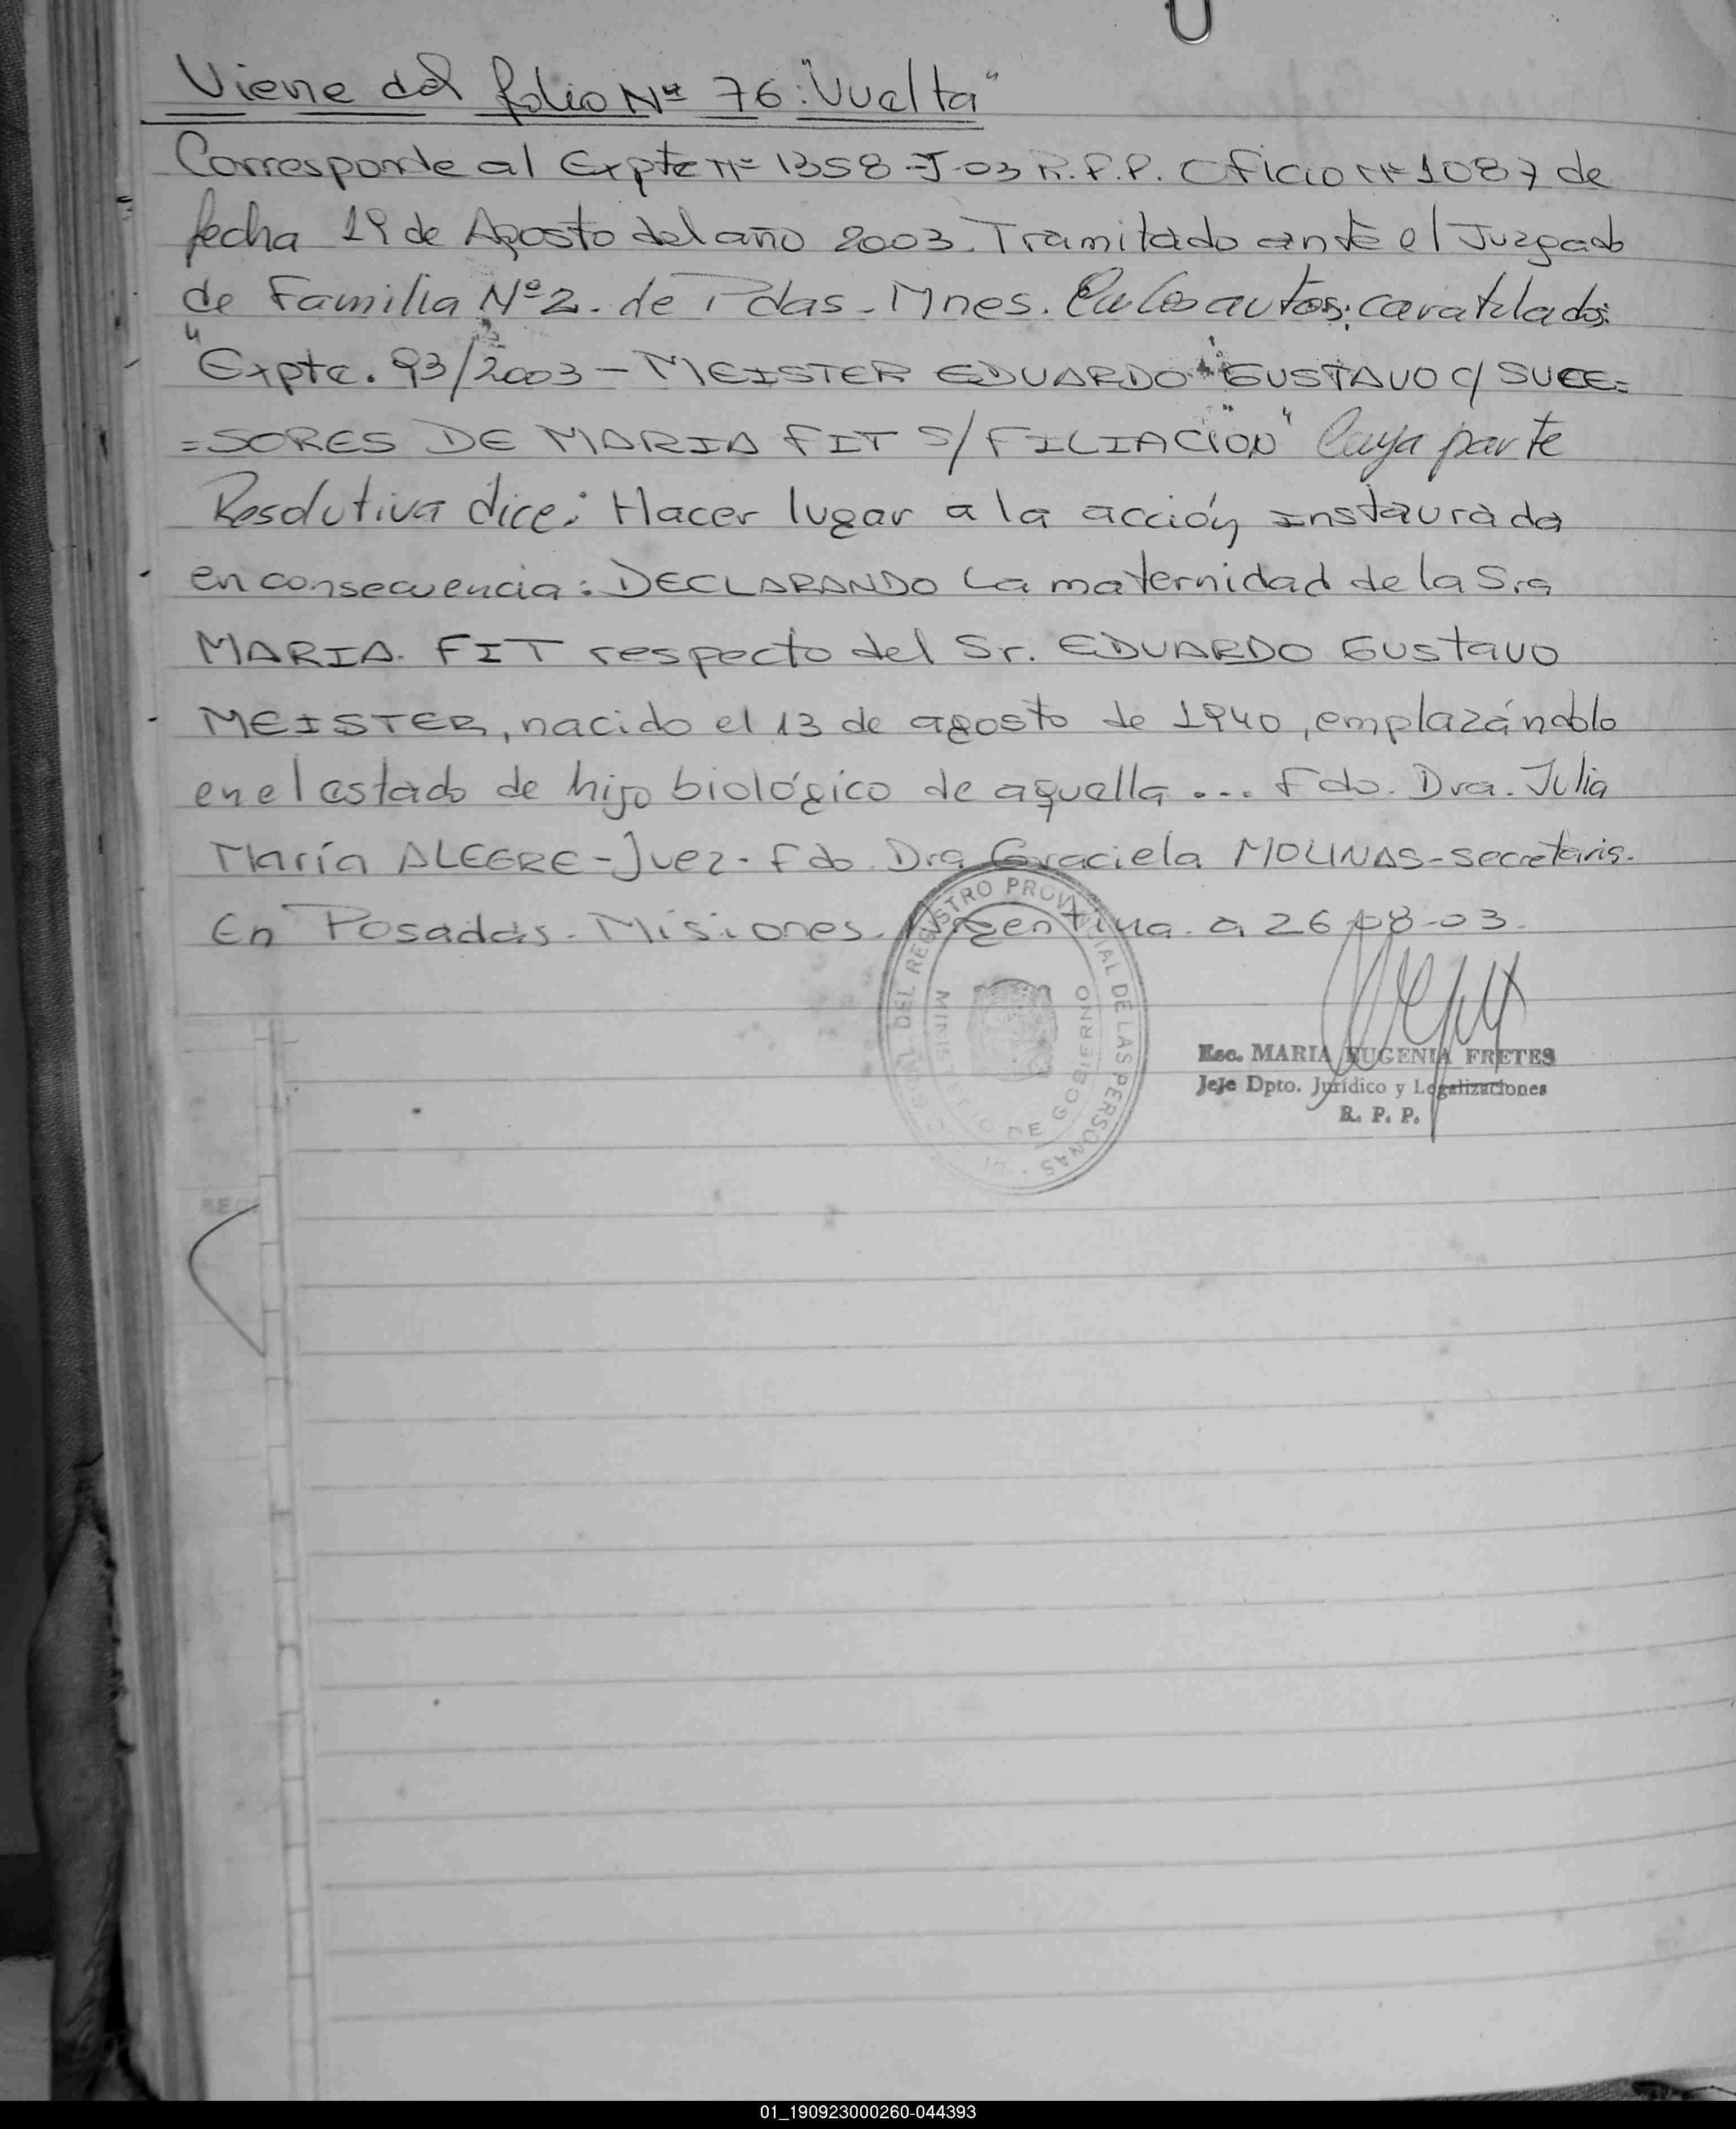 Viene del folio Nº 76: "Vuelta"
Corresponde al Expte nº 1358-J-03 R.P.P. Oficio nº 1087 de
fecha 19 de Agosto del año 2003. Tramitado ante el Juzgado
de Familia Nº 2. de Pdas. Mnes. En los autos; caratulados:
"Expte. 93/2003 - MEISTER EDUARDO GUSTAVO C/ SUCE=
=SORES DE MARIA FIT S/ FILIACION" Cuya parte
Resolutiva dice: Hacer lugar a la acción instaurada
en consecuencia: DECLARANDO La maternidad de la Sra
MARIA. FIT respecto del Sr. EDUARDO GUStavo
MEISTER, nacido el 13 de agosto de 1940, emplazándolo
en el estado de hijo biológico de aquella... Fdo. Dra. Julia
María ALEGRE - Juez. Fdo. Dra Graciela MOLINAS - secretaria.
En Posadas. Misiones. Argentina. a 26-08-03.
DEL REGISTRO PROVINCIAL DE LAS PERSONAS
MINISTERIO DE GOBIERNO
Esc. MARIA EUGENIA FRETES
Jefe Dpto. Jurídico y Legalizaciones
R. P. P.
01_190923000260-044393